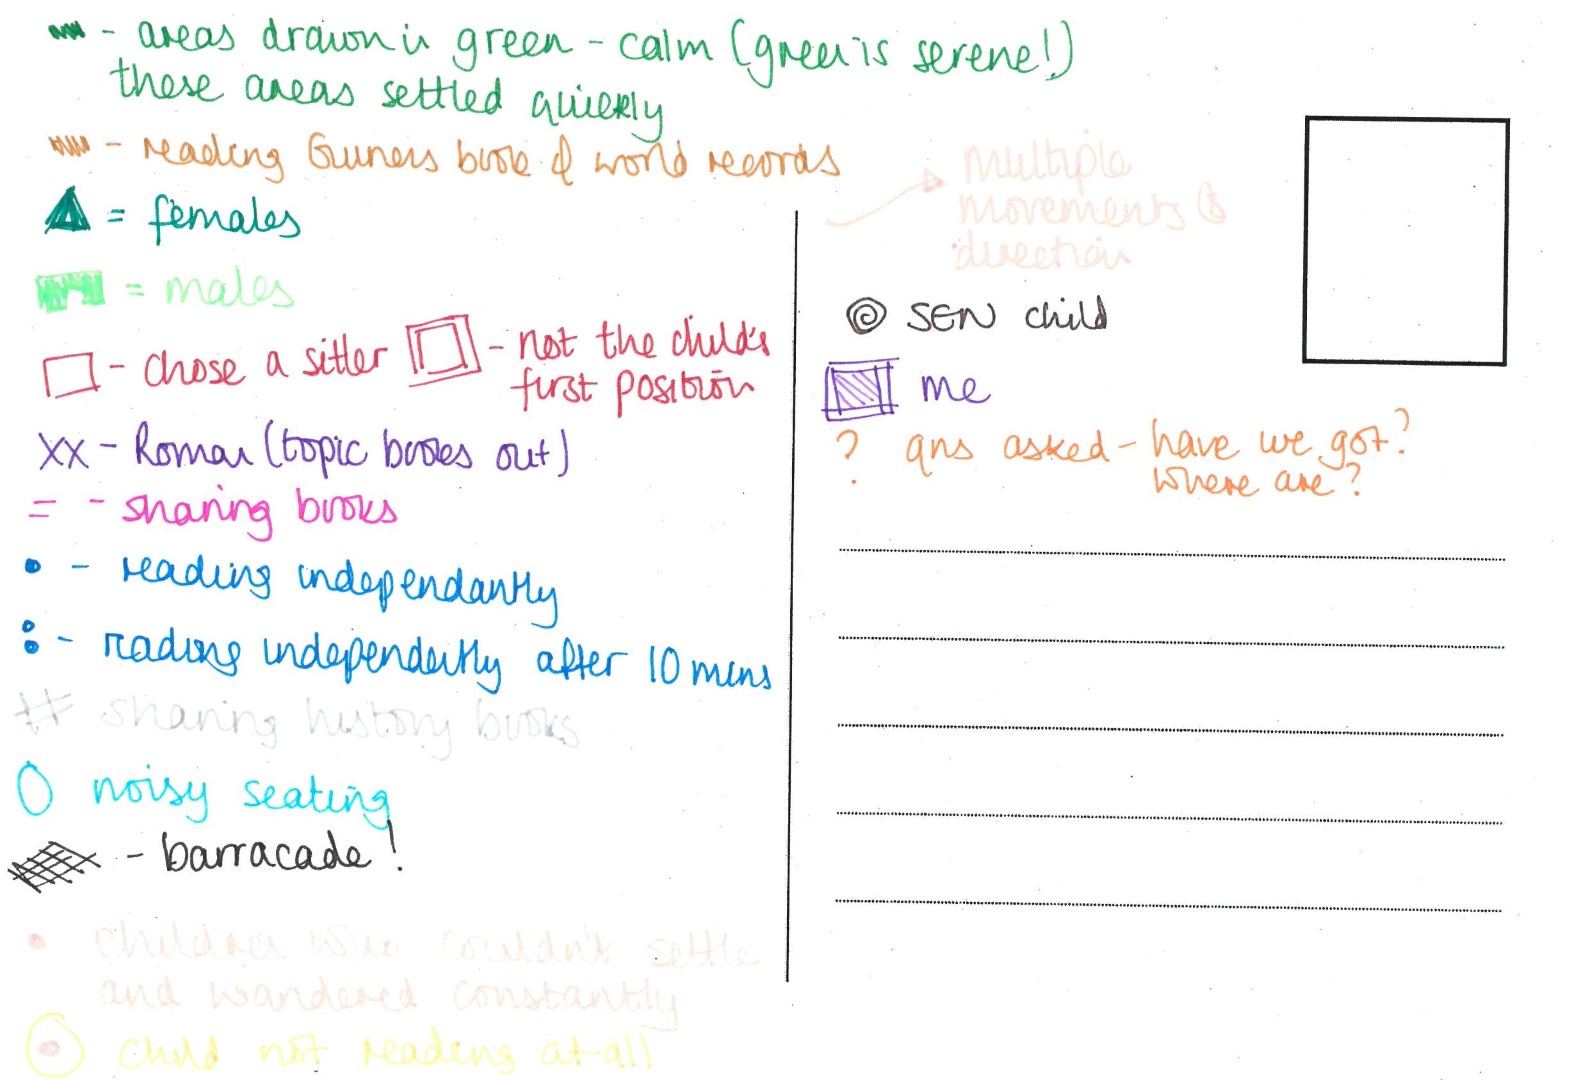 - areas drawn in green - calm (green is serene!)
these areas settled quickly
- reading Guiners book of world records
= females
= males
- chose a sitter
- not the child's
first position
XX - Roman (topic books out)
= - sharing books
- reading independantly
- reading independently after 10 mins
# sharing history books
noisy seating
- barracade!
children who couldn't settle
and wandered constantly
child not reading at all
multiple
movements &
direction
SEN child
me
? qns asked - have we got?
where are?